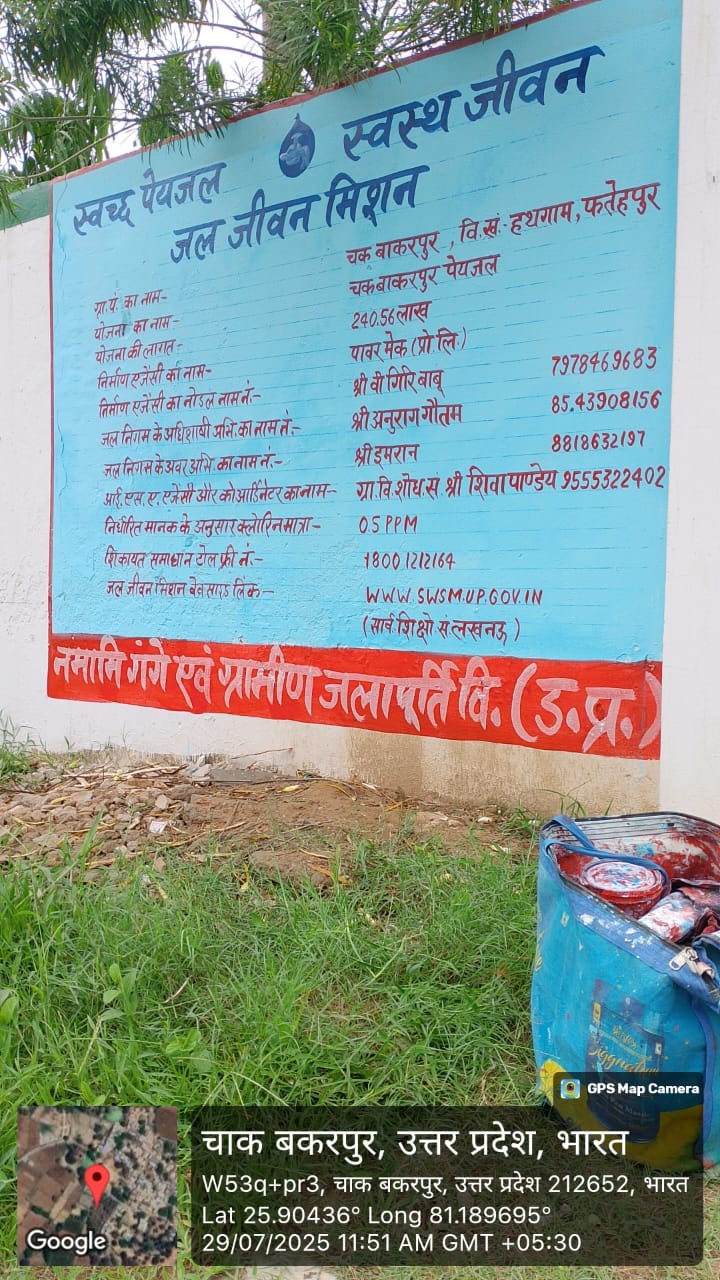 स्वच्छ पेयजल स्वस्थ जीवन
जल जीवन मिशन
ग्रा.पं. का नाम- चक बाकरपुर, वि.खं.- हथगाम, फतेहपुर
योजना का नाम- चकबाकरपुर पेयजल
योजना की लागत- 240.56 लाख
निर्माण एजेंसी का नाम- पावर मेक (प्रो.लि.)
निर्माण एजेंसी का नोडल नाम नं.- श्री वी गिरि बाबू 7978469683
जल निगम के अधिशाषी अभि. का नाम नं.- श्री अनुराग गौतम 85.43908156
जल निगम के अवर अभि. का नाम नं.- श्री इमरान 8818632197
आई.एस.ए. एजेंसी और कोआर्डिनेटर का नाम- ग्रा.वि.शोध.सं. श्री शिवा पाण्डेय 9555322402
निर्धारित मानक के अनुसार क्लोरिन मात्रा- 05 PPM
शिकायत समाधान टोल फ्री नं.- 18001212164
जल जीवन मिशन वेबसाइड लिंक- WWW.SWSM.UP.GOV.IN
नमामि गंगे एवं ग्रामीण जलापूर्ति वि. (उ.प्र.)
GPS Map Camera
चाक बकरपुर, उत्तर प्रदेश, भारत
W53q+pr3, चाक बकरपुर, उत्तर प्रदेश 212652, भारत
Lat 25.90436° Long 81.189695°
29/07/2025 11:51 AM GMT +05:30
Google